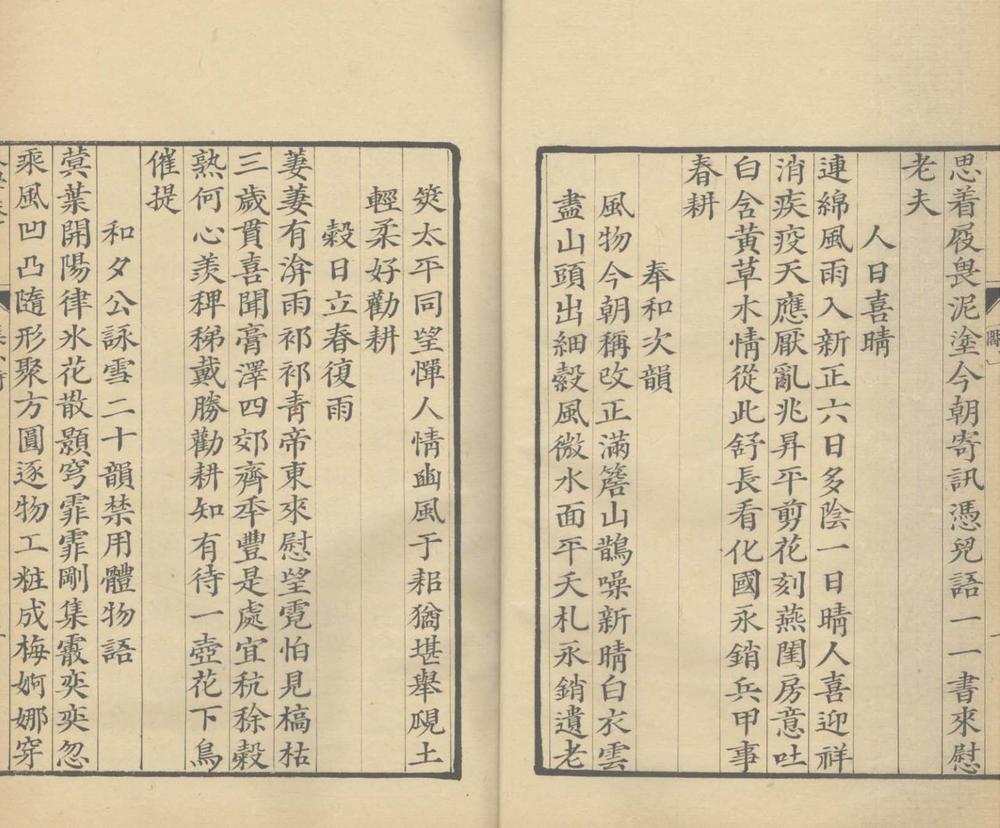 思着屐畏泥塗今朝寄訊憑兒語一一書來慰
老夫
人日喜晴
連綿風雨入新正六日多陰一日晴人喜迎祥
消疾疫天應厭亂兆昇平剪花刻燕閨房意吐
白含黃草木情從此舒長看化國永銷兵甲事
春耕
奉和次韻
風物今朝稱改正滿簷山鵲噪新晴白衣雲
盡山頭出細縠風微水面平夭札永銷遺老
筴太平同望憚人情豳風于耜猶堪舉覛土
輕柔好勸耕
穀日立春復雨
萋萋有渰雨祁祁青帝東來慰望霓怕見槁枯
三歲貫喜聞膏澤四郊齊秊豐是處宜秔稌穀
熟何心羨稗稊戴勝勸耕知有待一壺花下鳥
催提
和夕公詠雪二十韻禁用體物語
蓂葉開陽律氷花散顥穹霏霏剛集霰奕奕忽
乘風凹凸隨形聚方圓逐物工粧成梅婀娜穿